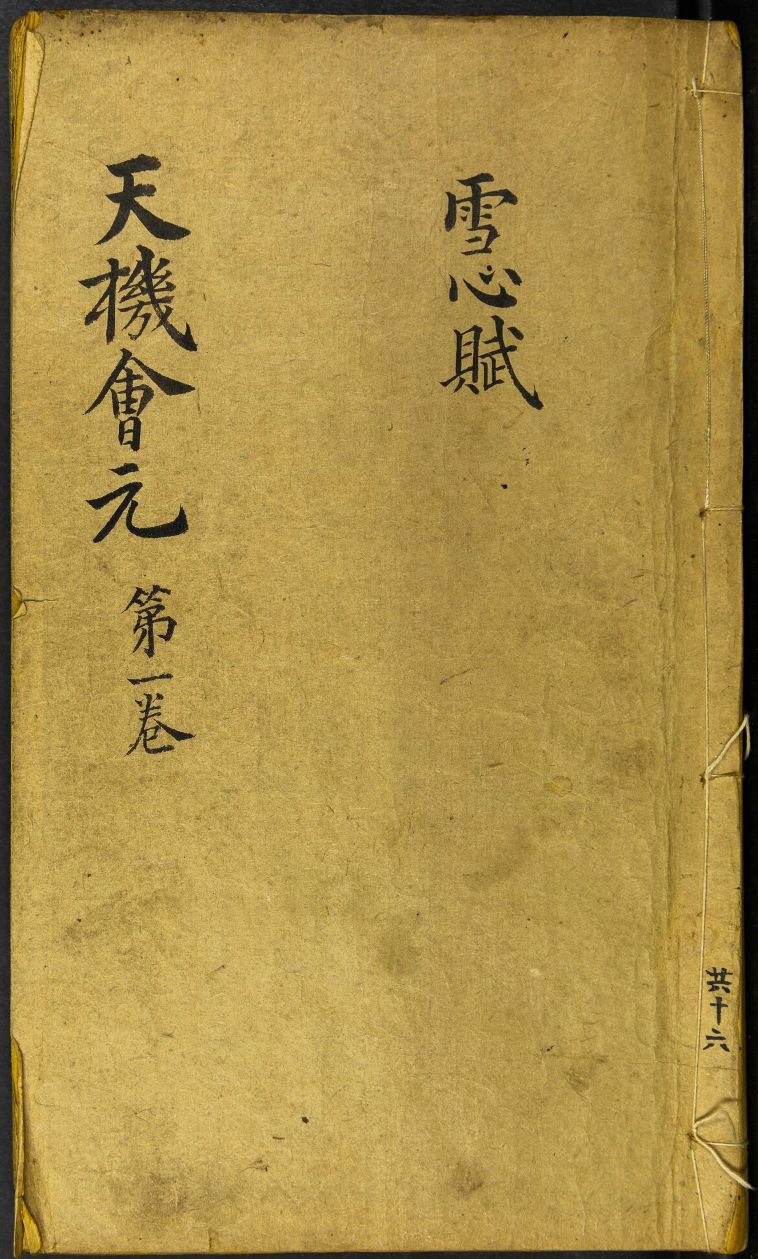 雪心賦
天機會元 第一卷
共十六